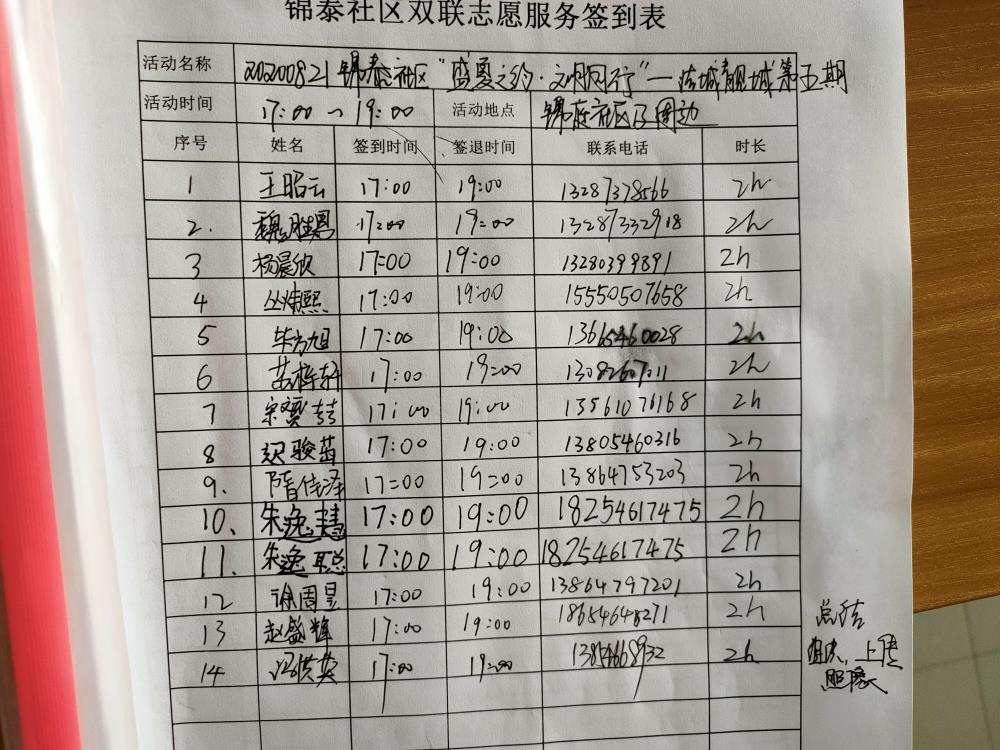 锦泰社区双联志愿服务签到表
活动名称 20200821锦泰社区“盛夏之约·文明同行”—洁城靓城第五期
活动时间 17:00~19:00 活动地点 锦泰社区及周边
序号 姓名 签到时间 签退时间 联系电话 时长
1 王昭云 17:00 19:00 13287378566 2h
2. 魏胜男 17:00 19:00 13287332918 2h
3 杨晨欣 17:00 19:00 13280399891 2h
4 丛炜熙 17:00 19:00 15550507658 2h
5 毕方旭 17:00 19:00 13665460028 2h
6 17:00 19:00 2h
7 宋 17:00 19:00 13561076168 2h
8 骏茁 17:00 19:00 13805460316 2h
9. 隋佳泽 17:00 19:00 13864753203 2h
10、 朱逸 17:00 19:00 18254617475 2h
11. 朱逸聪 17:00 19:00 18254617475 2h
12 徐周昱 17:00 19:00 13864797201 2h
13 赵盛辉 17:00 19:00 18654648271 2h
14 冯洪英 17:00 19:00 13854668932 2h
总结
上传
照像